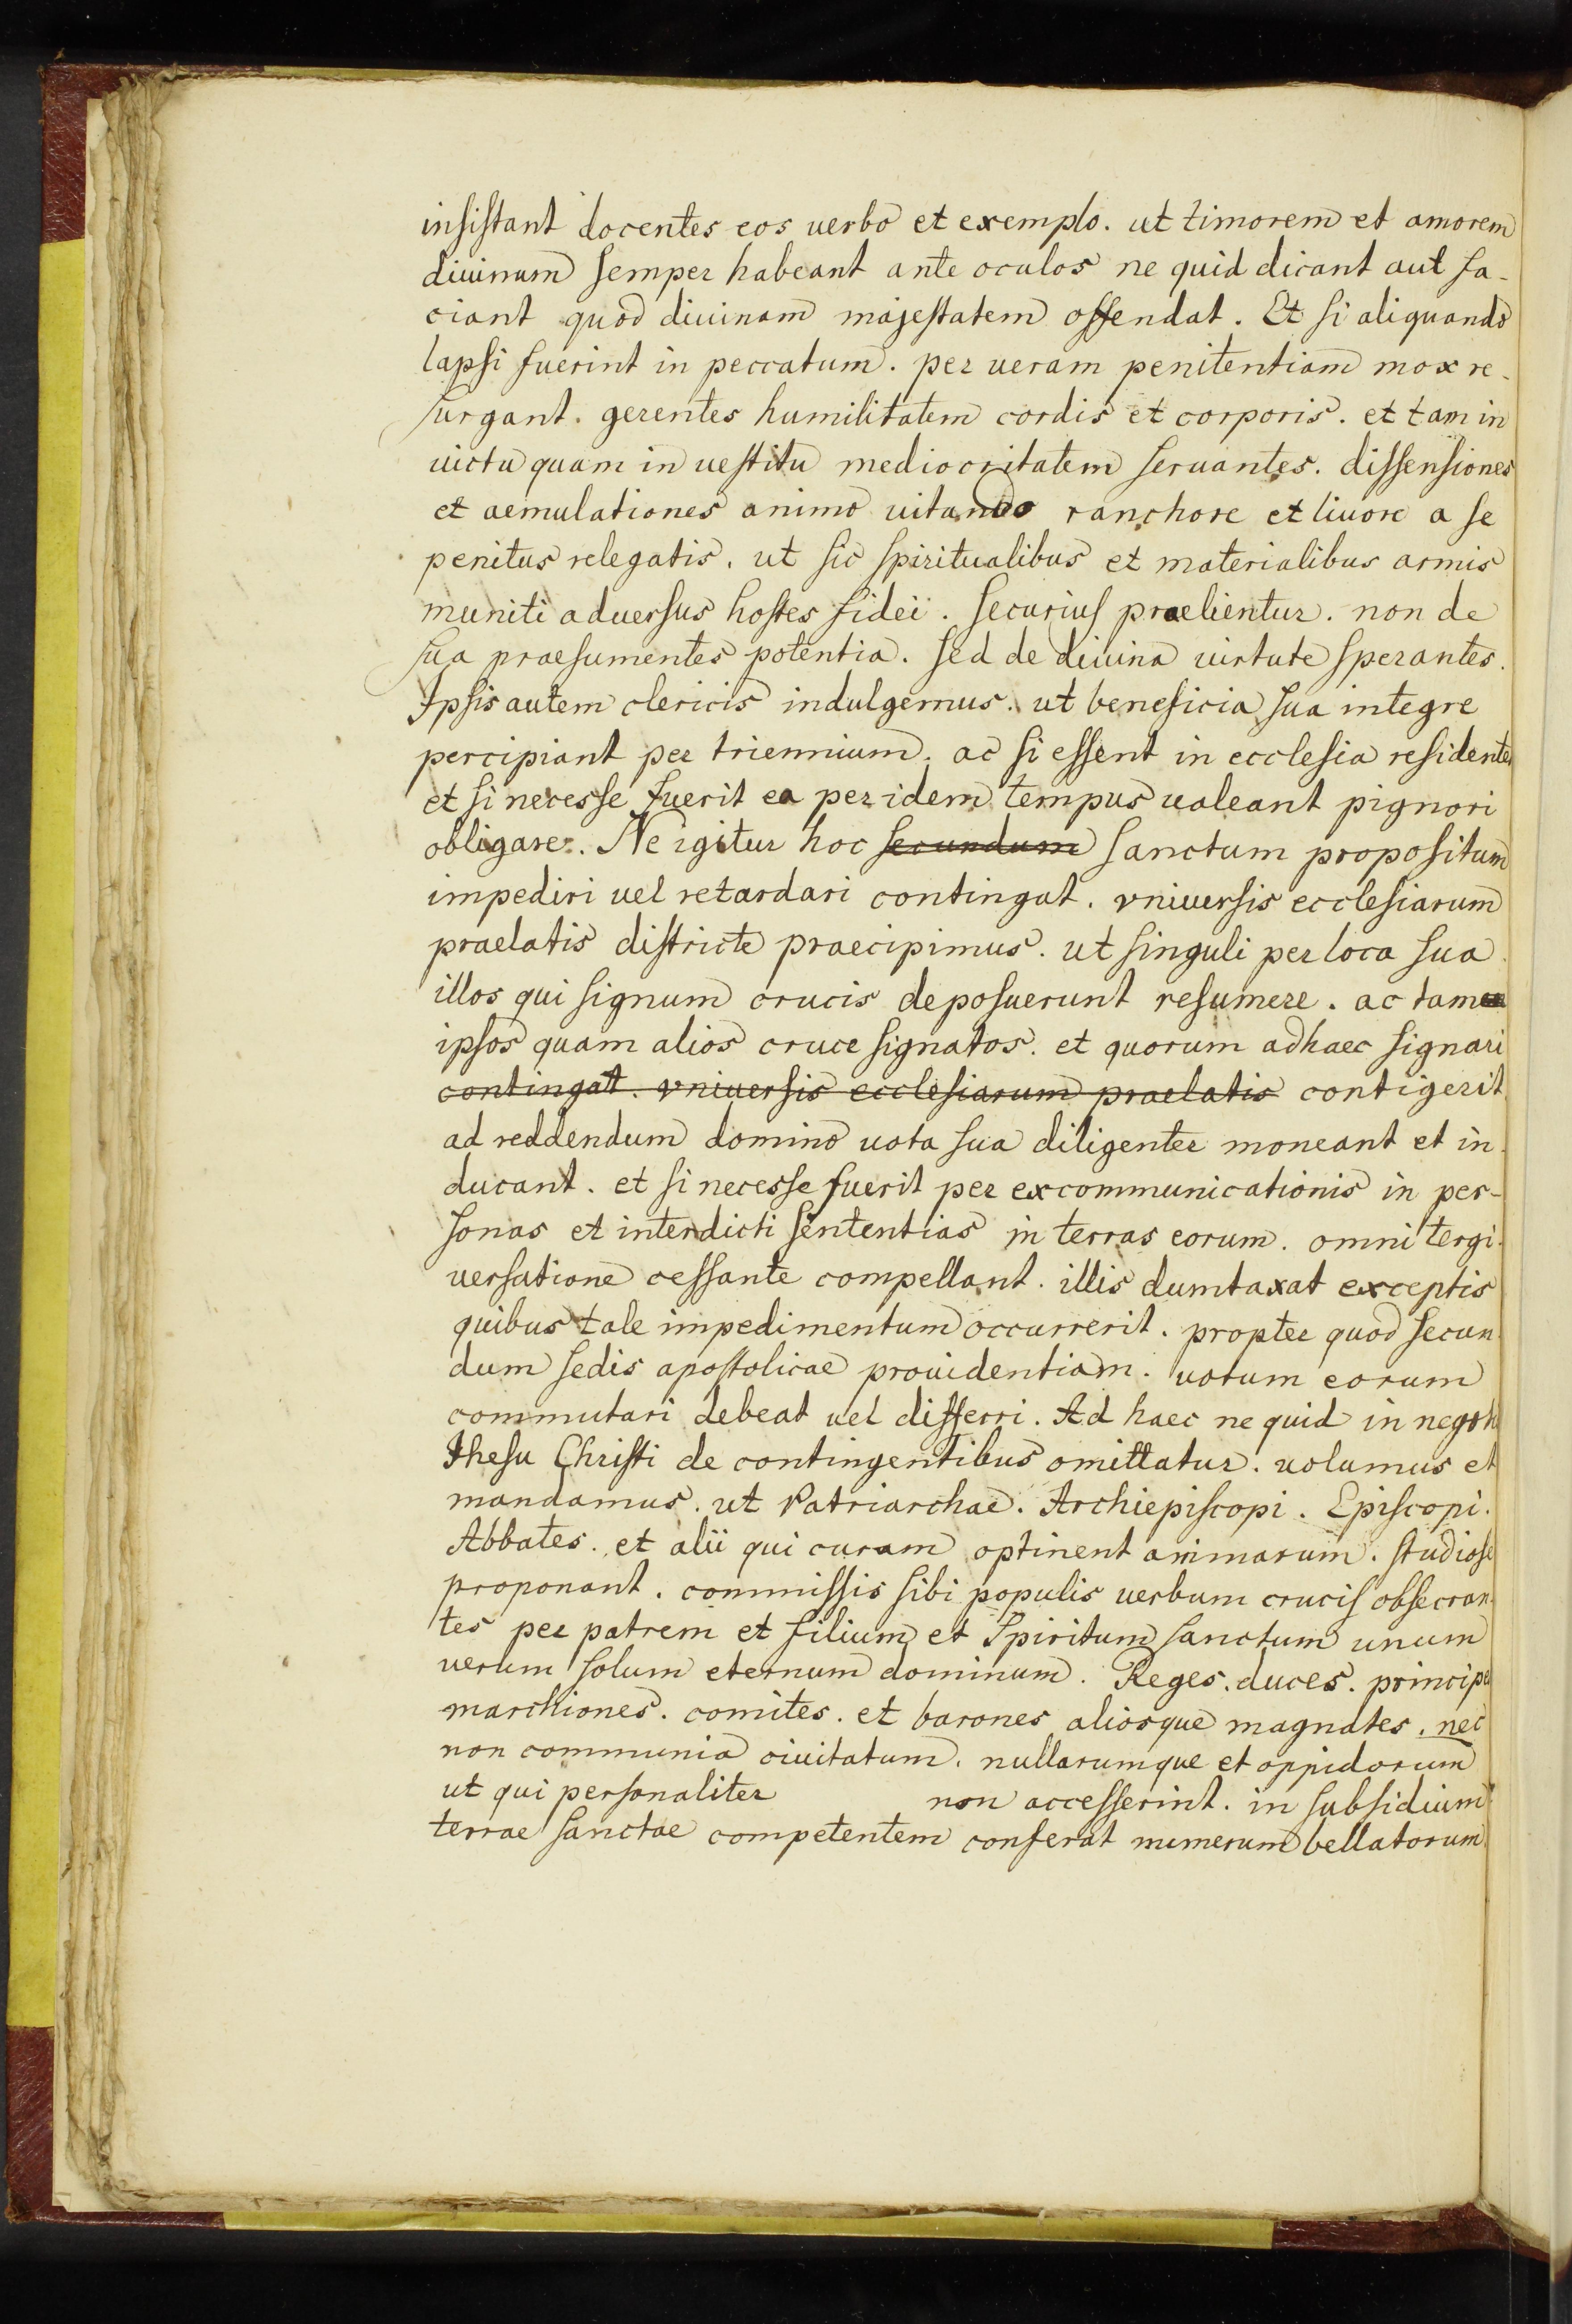 insistant docentes eos uerbo et exemplo. ut timorem et amorem
diuinum semper habeant ante oculos ne quid dicant aut fa-
ciant quod diuinam majestatem offendat. Et si aliquando
lapsi fuerint in peccatum. per ueram penitentiam mox re-
surgant. gerentes humilitatem cordis et corporis. et tam in
uictu quam in uestitu mediocritatem seruantes. dissensiones
et aemulationes animo uitando ranchore et liuore a se
penitus relegatis. ut sic spiritualibus et materialibus armis
muniti aduersus hostes fidei. securius praelientur. non de
sua praesumentes potentia. sed de diuina uirtute sperantes.
Ipsis autem clericis indulgemus. ut beneficia sua integre
percipiant per triennium. ac si essent in ecclesia residentes
et si necesse fuerit ea per idem tempus ualeant pignori
obligare. Ne igitur hoc secundum sanctum propositum
impediri uel retardari contingat. vniuersis ecclesiarum
praelatis districte praecipimus. ut singuli per loca sua
illos qui signum crucis deposuerunt resumere. ac tam
ipsos quam alios cruce signatos. et quorum adhaec signari
contingat. vniuersis ecclesiarum praelatis contigerit
ad reddendum domino uota sua diligenter moneant et in
ducant. et si necesse fuerit per excommunicationis in per-
sonas et interdicti sententias in terras eorum. omni tergi-
uersatione cessante compellant. illis dumtaxat exceptis
quibus tale impedimentum occurrerit. propter quod secun
dum sedis apostolicae prouidentiam. uotum eorum
commutari debeat uel differri. Ad haec ne quid in negoti
Ihesu Christi de contingentibus omittatur. uolumus et
mandamus. ut Patriarchae. Archiepiscopi. Episcopi.
Abbates. et alii qui curam optinent animarum. studiose
proponant. commissis sibi populis uerbum crucis obsecran
tes per patrem et filium et Spiritum sanctum unum
uerum solum eternum dominum. Reges. duces. principes
marchiones. comites. et barones aliosque magnates. nec
non communia ciuitatum. nullarumque et oppidorum
ut qui personaliter non accesserint. in subsidium
terrae sanctae competentem conferat numerum bellatorum